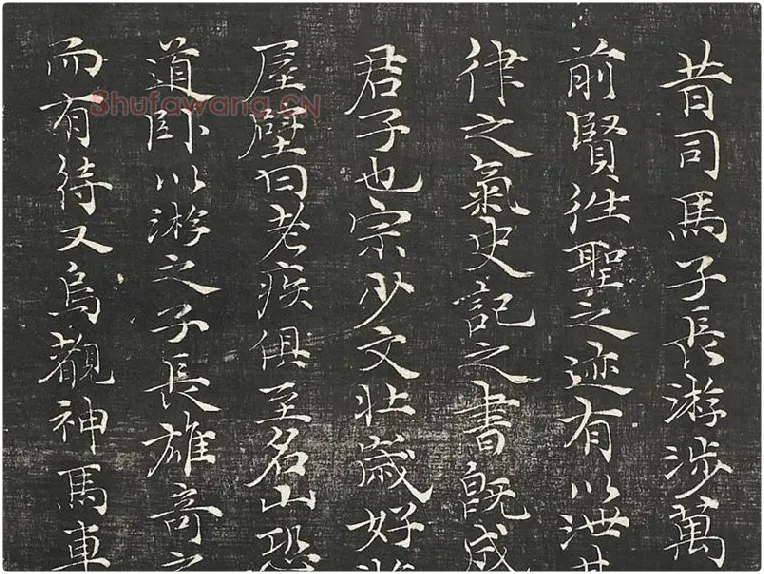 昔司馬子長游涉萬
前賢往聖之迹有以泄其
律之氣史記之書既成
君子也宗少文壯歲好遊
屋壁曰老疾俱至名山恐
道卧以游之子長雄奇之
而有待又烏覩神馬車
Shufawang.CN